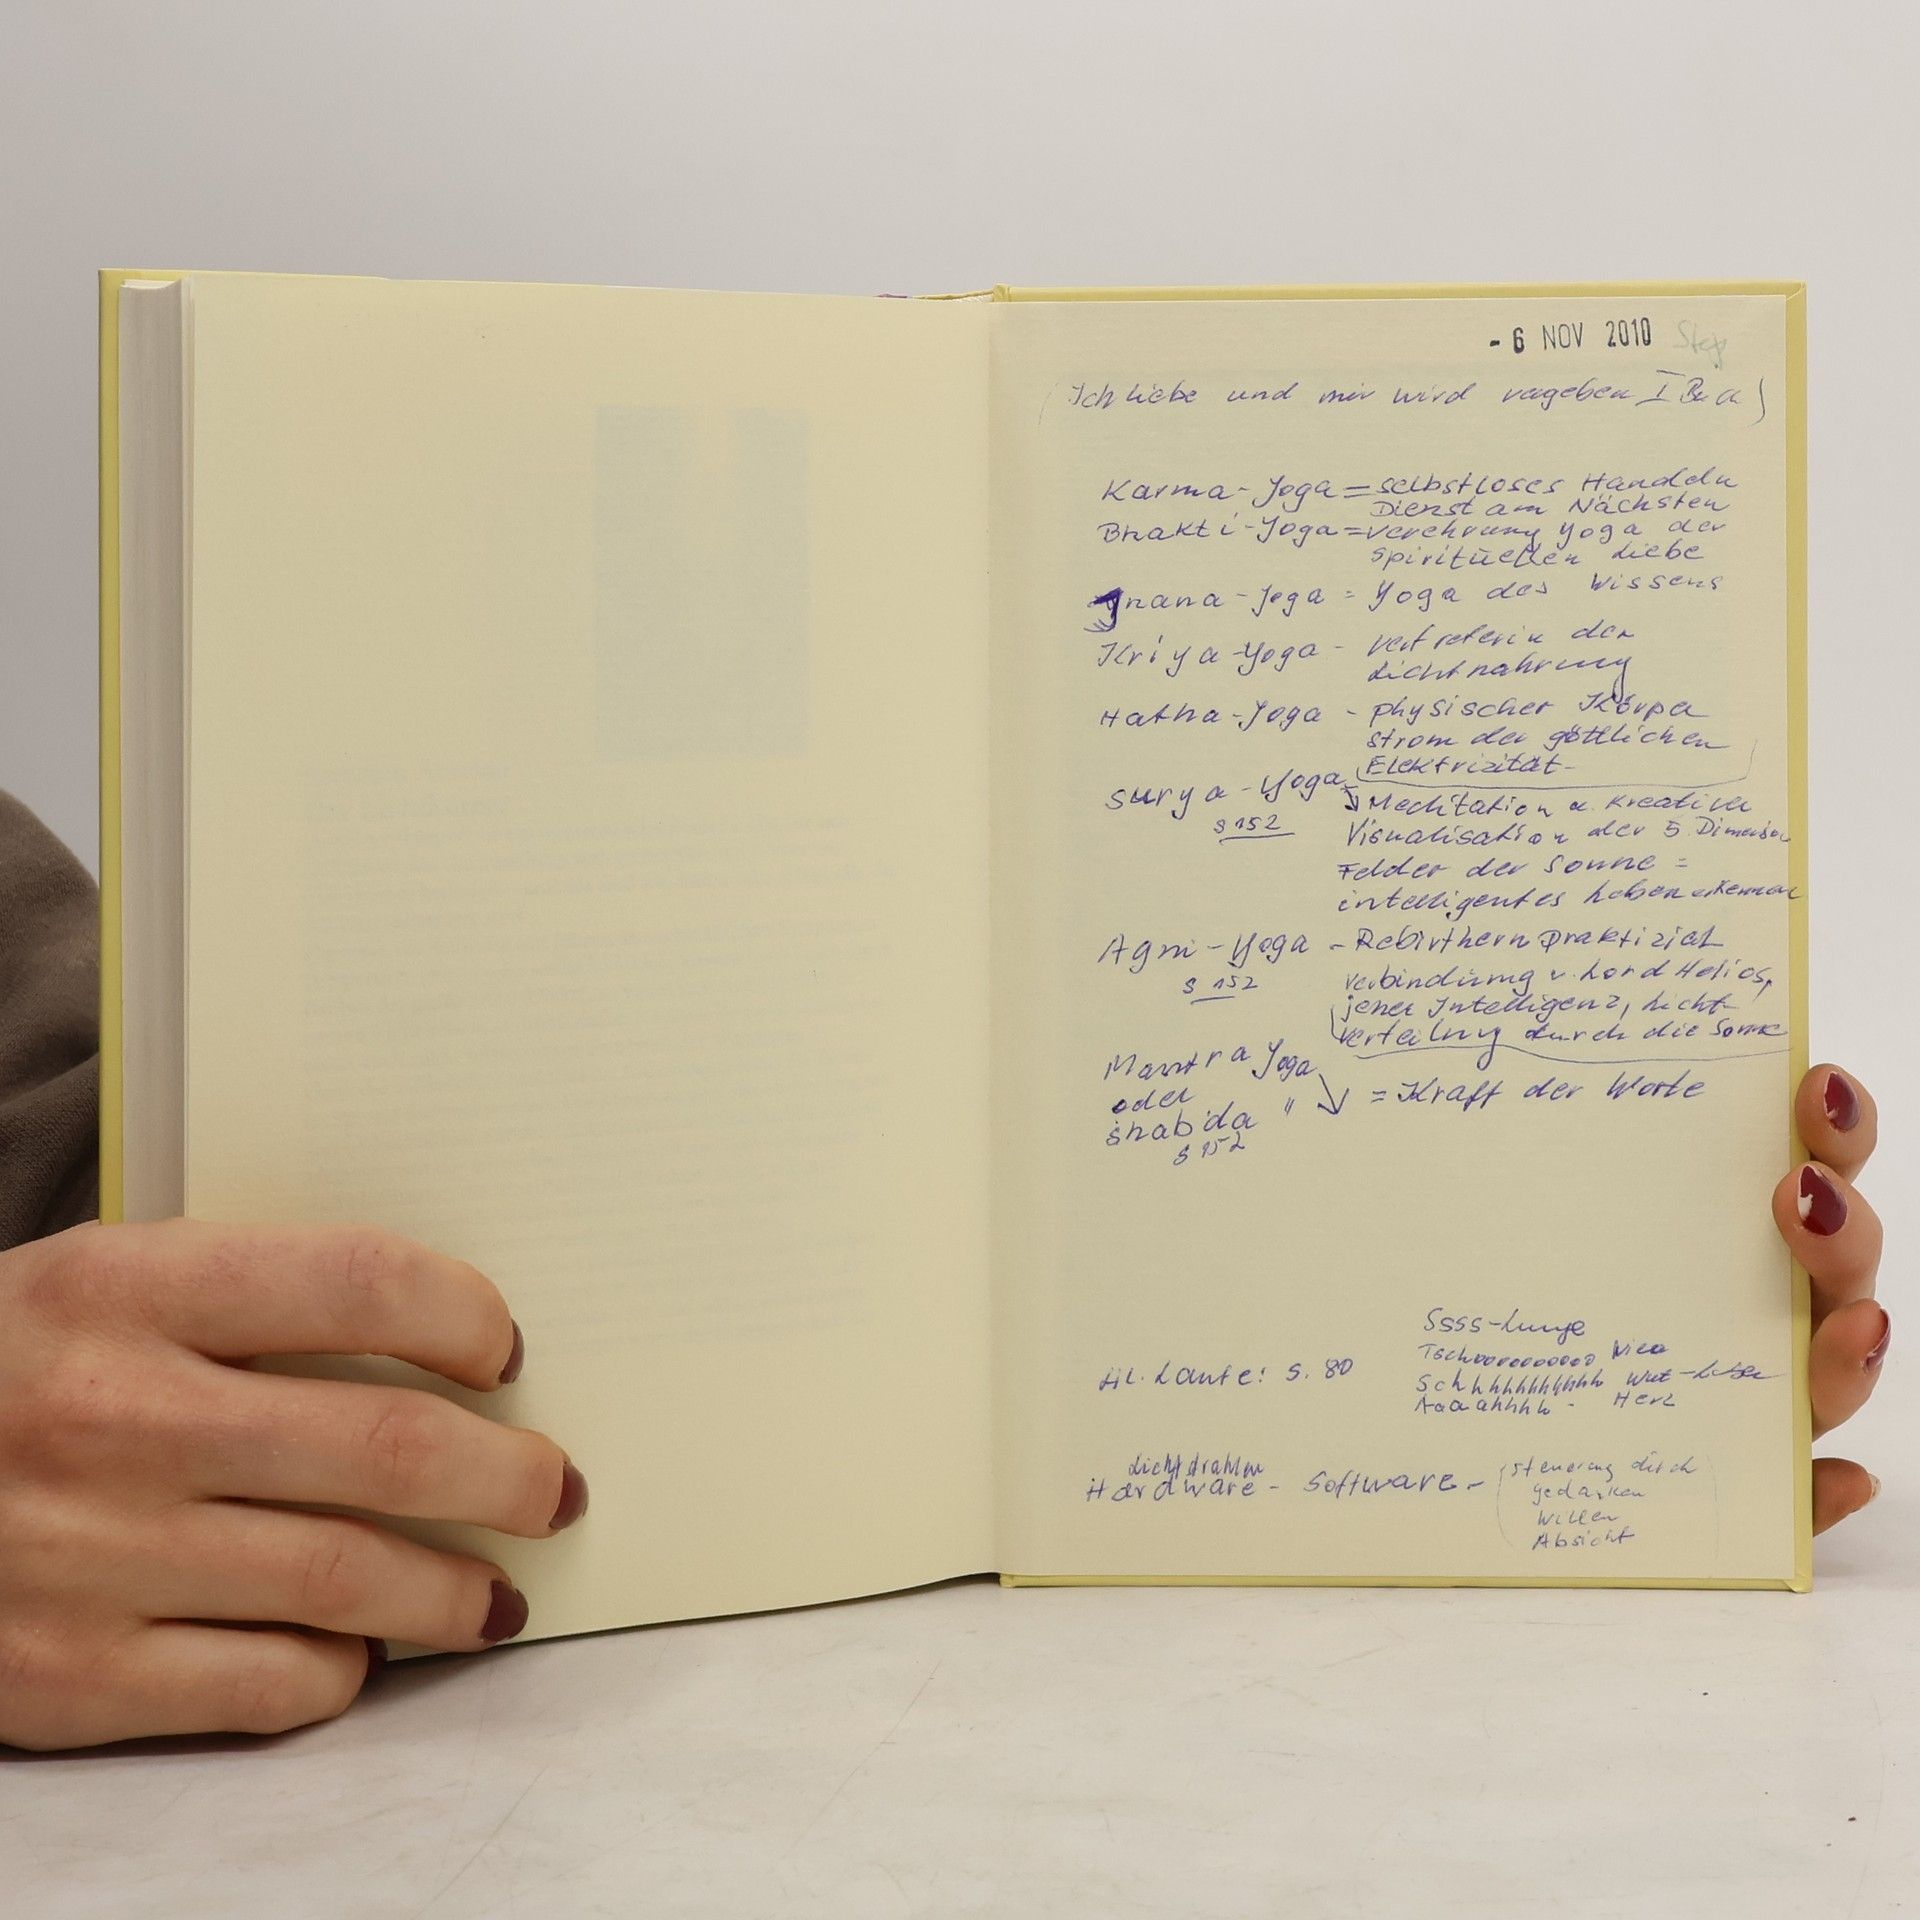 - 6 NOV 2010
(Ich liebe und mir wird vergeben I Bu a)
Karma-Yoga = selbstloses Handeln
Dienst am Nächsten
Bhakti-Yoga = verehrung Yoga der
Spirituellen Liebe
Jnana-Yoga = Yoga des Wissens
Kriya-Yoga - vertreterin der
Lichtnahrung
Hatha-Yoga - physischer Körper
Strom der göttlichen
Elektrizität-
Surya-Yoga Meditation u. Kreative
S 152
Visualisation der 5. Dimension
Felder der Sonne =
intelligentes Leben erkennen
Agni-Yoga - Rebirthern praktiziert
S 152
Verbindung v. Lord Helios,
jener Intelligenz, Licht-
verteilung durch die Sonne
Mantra Yoga
oder = Kraft der Worte
shabda "
S 152
Ssss-Lunge
Tschooooooooo Niere
Hl. Laute: S. 80
Schhhhhhhhhh Wut -
Aaaahhhh - Herz
Lichtstrahlen
Hardware - Software -
Steuerung durch
gedanken
Willen
Absicht